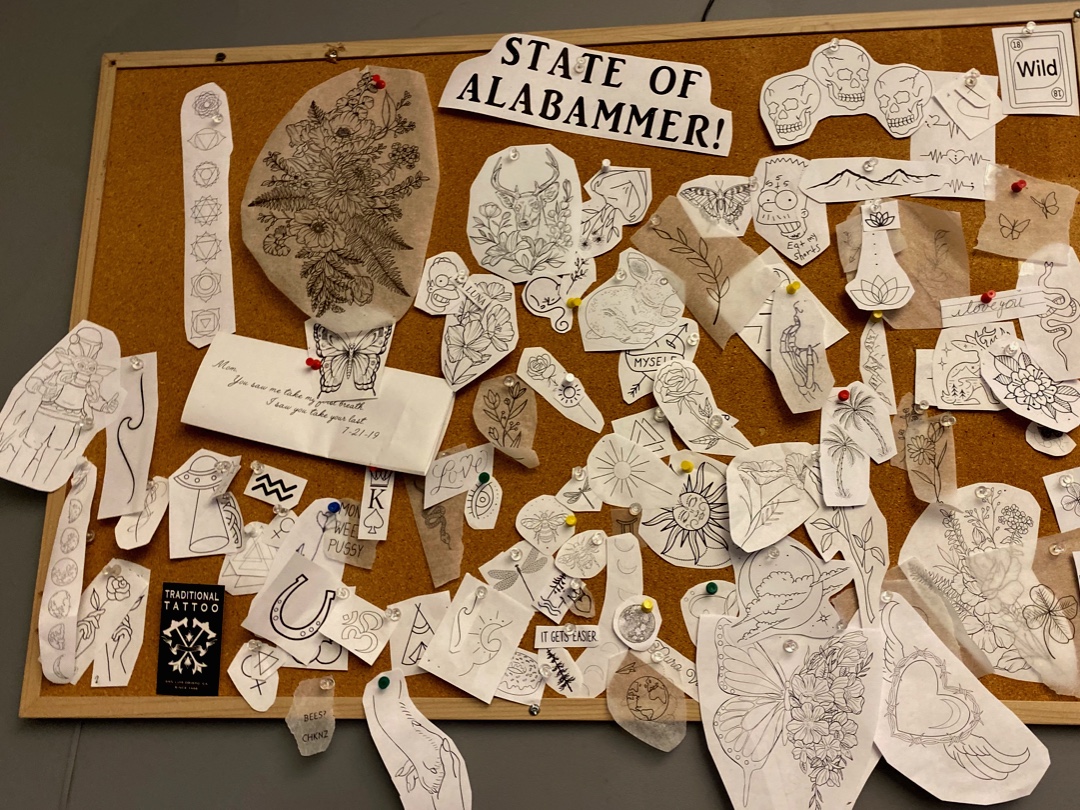 STATE OF
ALABAMMER!
18
Wild
18
Eat my
Shorts
LA LUNA
i love you
Mom,
You saw me take my first breath
I saw you take your last
7-21-19
MYSELF
Love
K
MON
WEE
PUSSY
TRADITIONAL
TATTOO
IT GETS EASIER
2
BEES?
CHKNZ